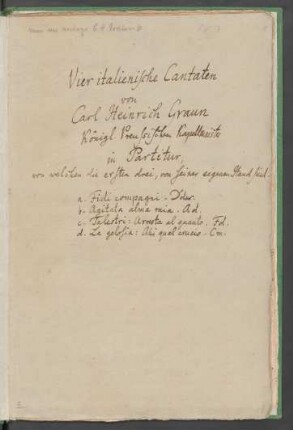 Vier italienische Cantaten
von
Carl Heinrich Graun
Königl Preussischen Kapellmeister
in Partitur,
von welchen die ersten drei, von seiner eigenen Hand sind.
a. Fidi compagni. Ddur.
b. Agitata alma mia. Ad.
c. Talestri: al Fd.
d. La gelosia: Ahi quel Cm.